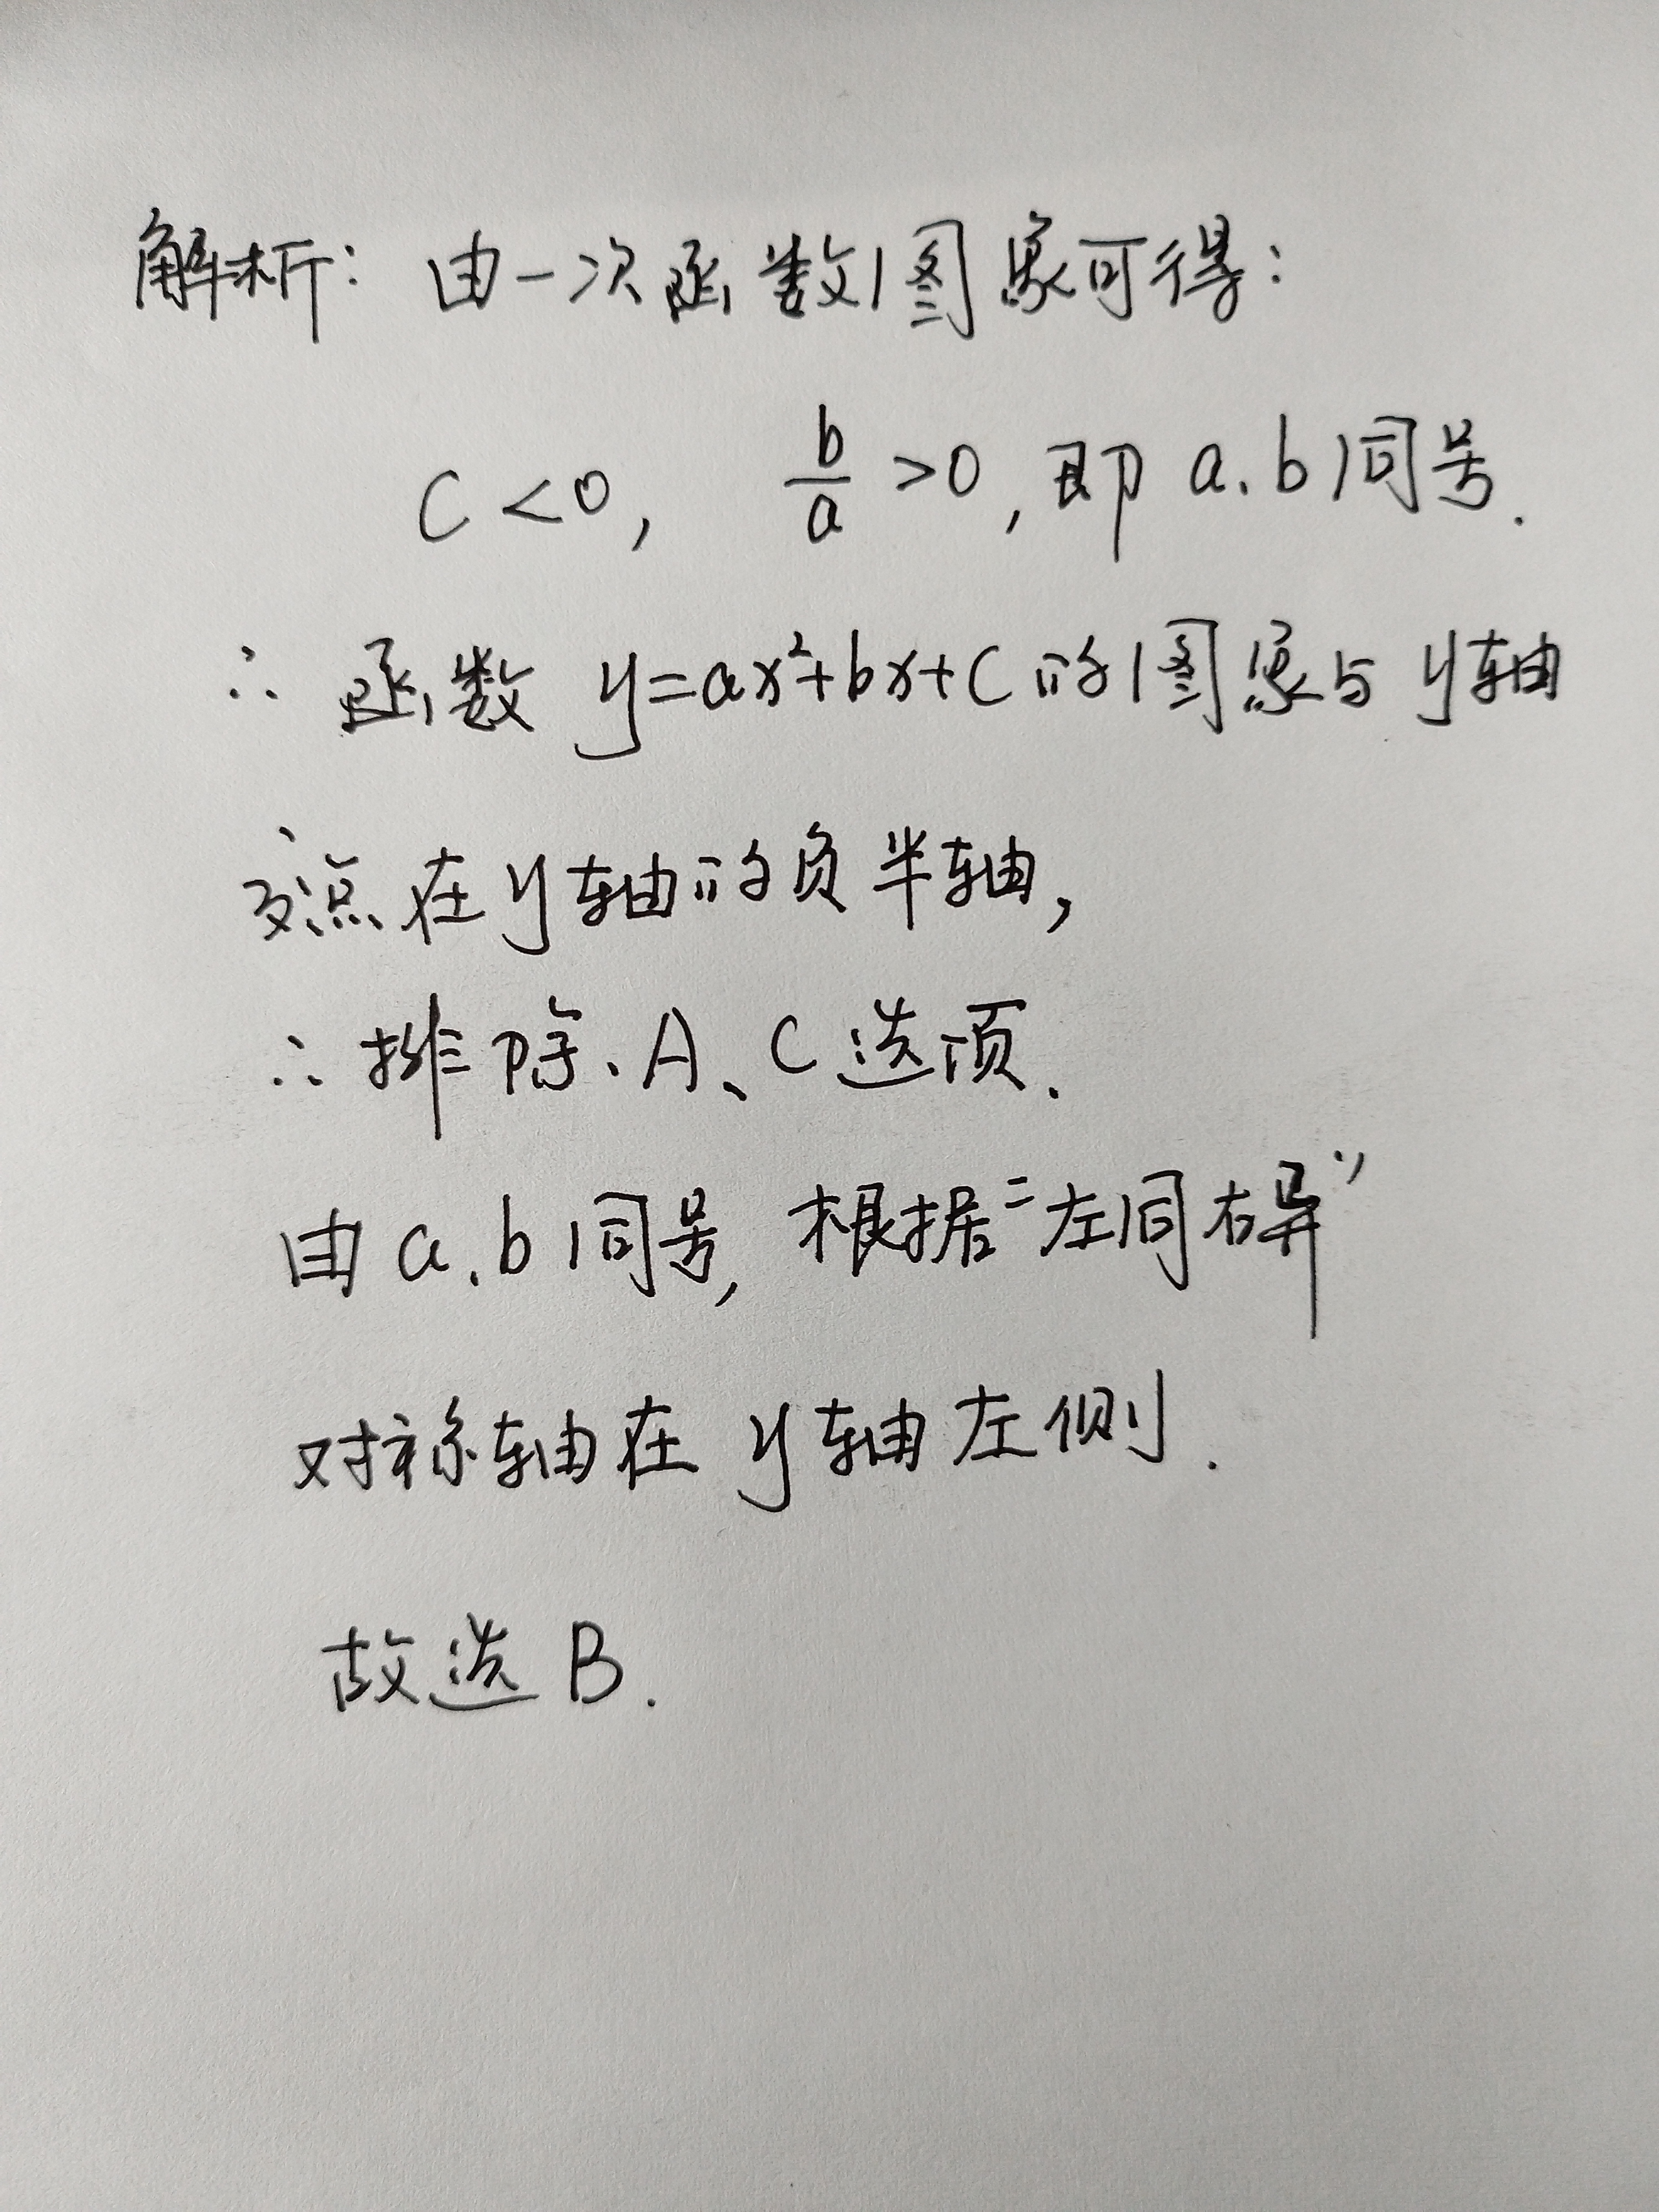 解析：由一次函数图象可得：
C<0, b/a >0,即 a.b同号.
∴ 函数 y=ax²+bx+C的图象与y轴
交点在y轴的负半轴,
∴排除.A、C选项.
由a.b同号,根据“左同右异”
对称轴在y轴左侧.
故选B.